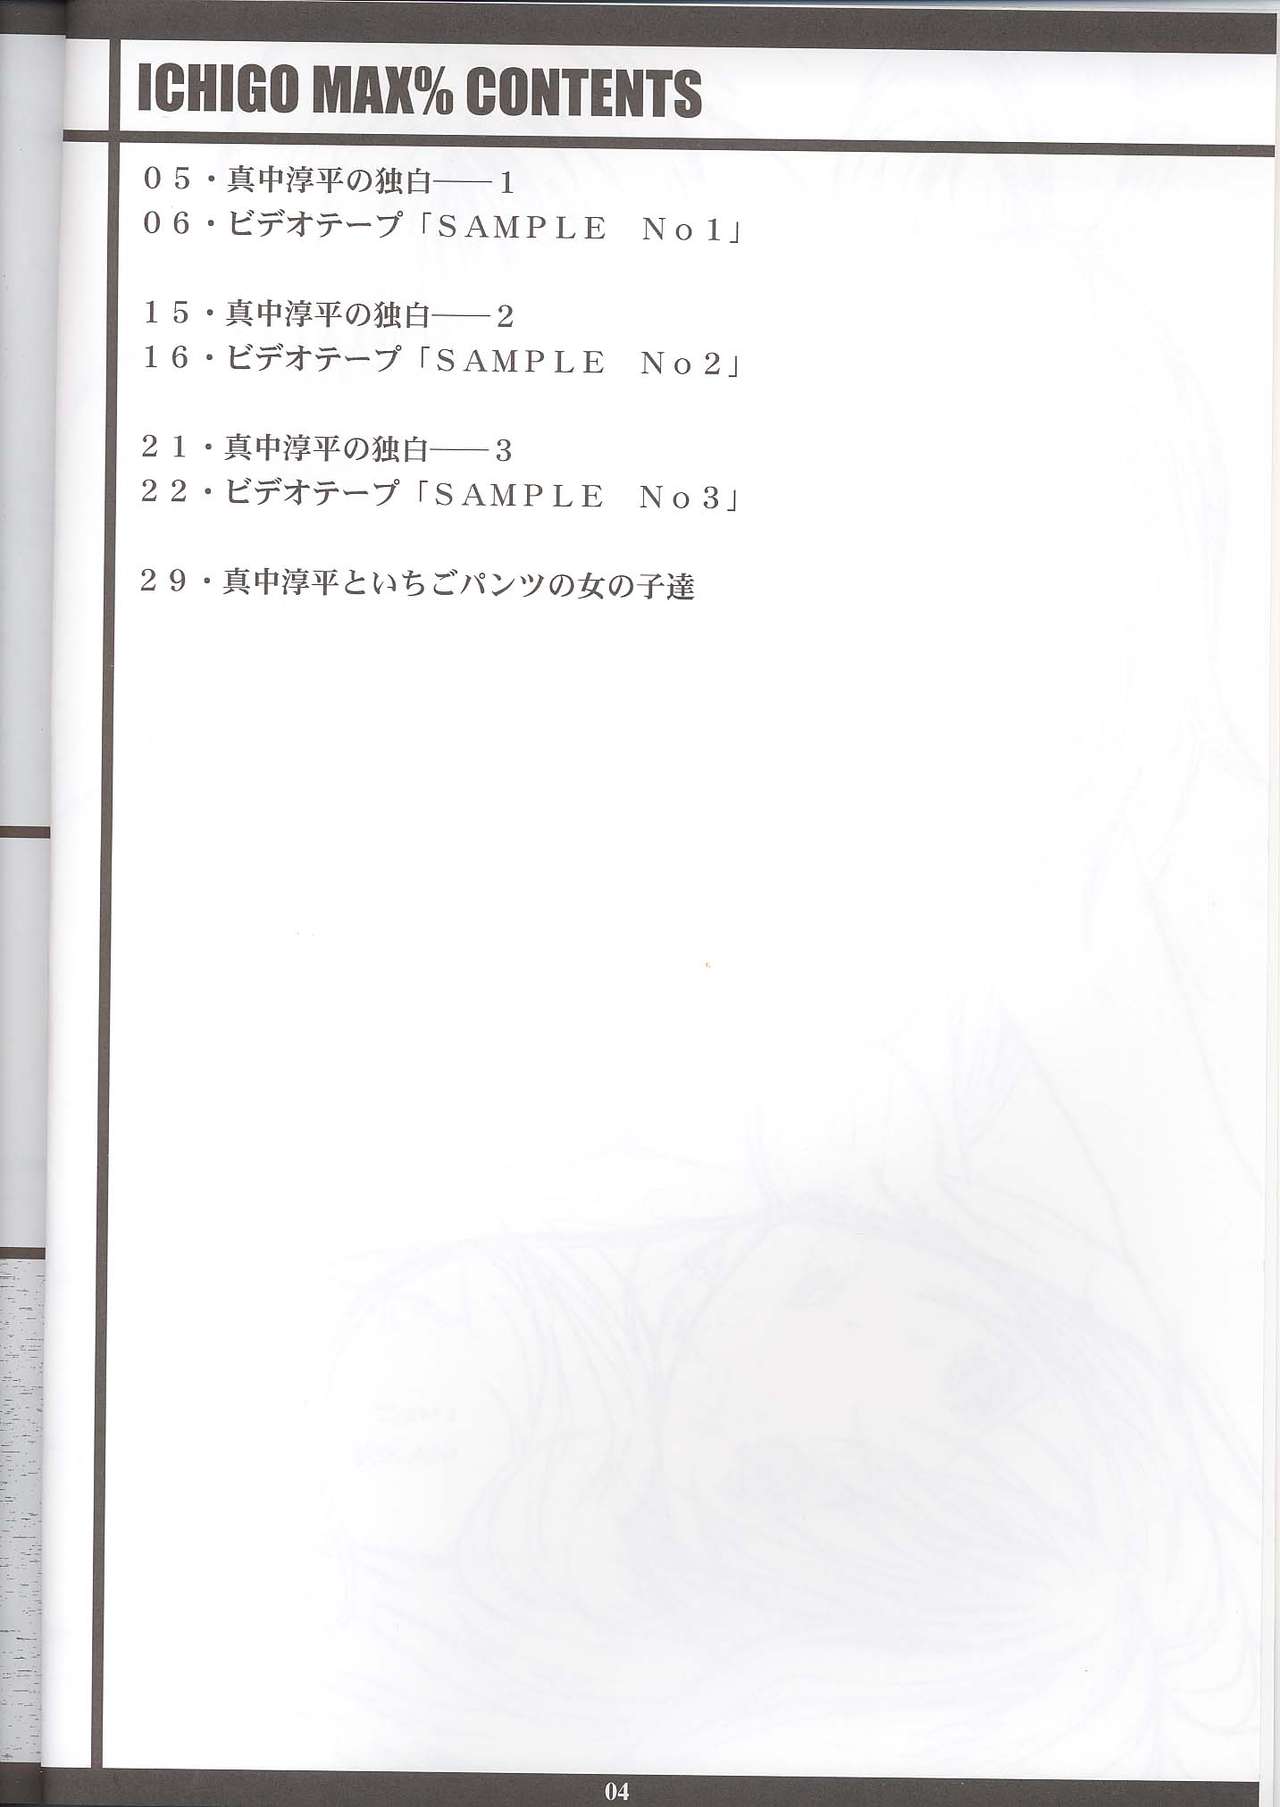 ICHIGO MAX% CONTENTS
０５・真中淳平の独白――１
０６・ビデオテープ「ＳＡＭＰＬＥ　Ｎｏ１」
１５・真中淳平の独白――２
１６・ビデオテープ「ＳＡＭＰＬＥ　Ｎｏ２」
２１・真中淳平の独白――３
２２・ビデオテープ「ＳＡＭＰＬＥ　Ｎｏ３」
２９・真中淳平といちごパンツの女の子達
04